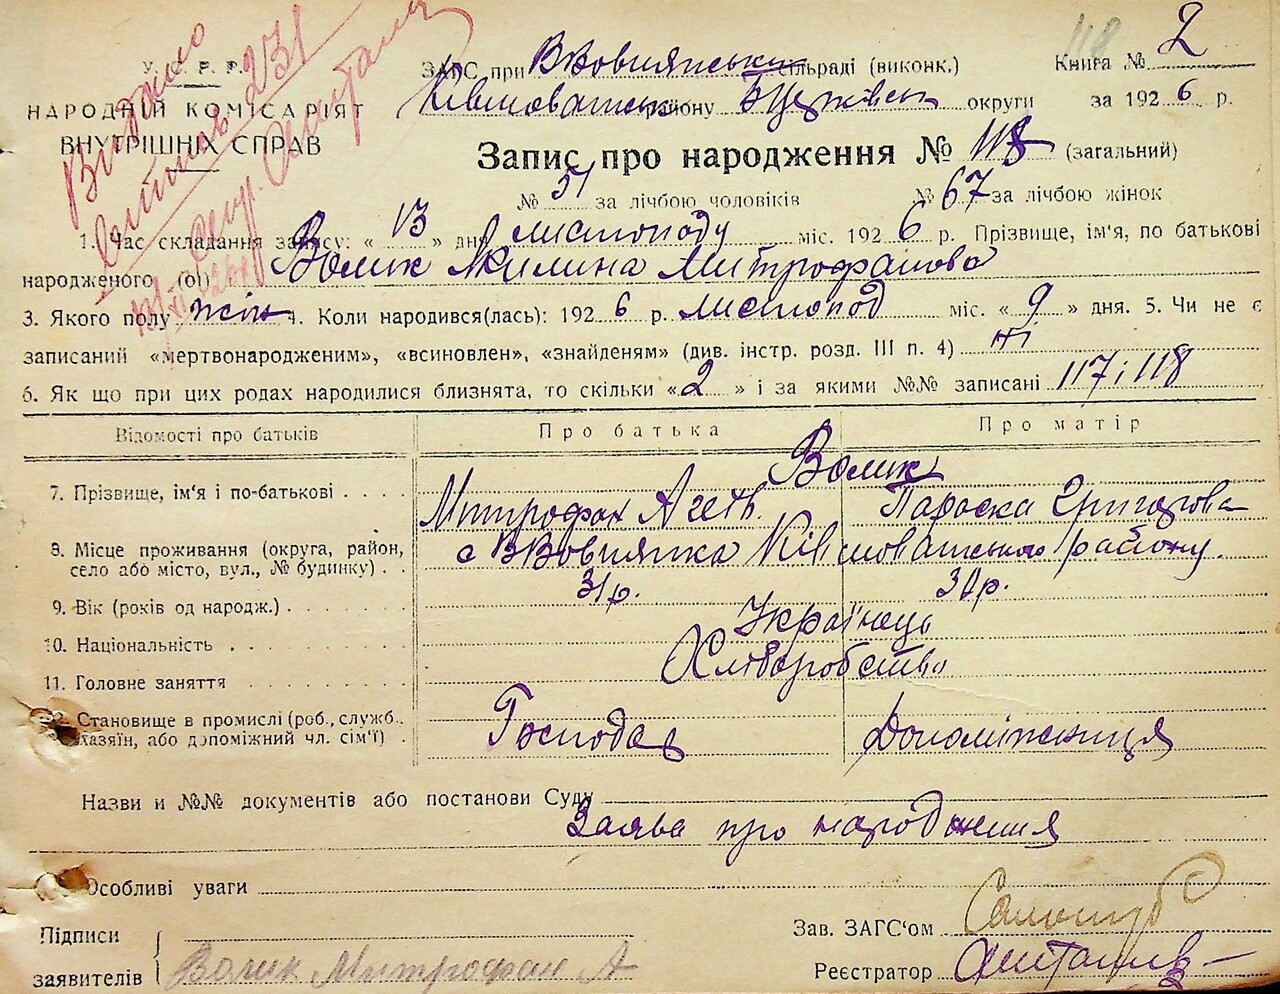 У. С. Р. Р.
НАРОДНІЙ КОМІСАРІЯТ
ВНУТРІШНІХ СПРАВ
118
ЗАГС при ВВовнянськи сільраді (виконк.)
Книга № 2
району БЦерківськ округи за 1926 р.
Запис про народження № 118 (загальний)
№ 51 за лічбою чоловіків № 67 за лічбою жінок
1. Час складання запису: «13» дня листопаду міс. 1926 р. Прізвище, ім'я, по батькові
народженого (ої) Волик Акилина Митрофанова
3. Якого полу жін 4. Коли народився(лась): 1926 р. листопад міс. «9» дня. 5. Чи не є
записаний «мертвонародженим», «всиновлен», «знайденям» (див. інстр. розд. III п. 4) ні
6. Як що при цих родах народилися близнята, то скільки «2» і за якими №№ записані 117 і 118
Відомості про батьків Про батька Про матір
Волик
7. Прізвище, ім'я і по-батькові . . . . Митрофан Параска Григорова
8. Місце проживання (округа, район,
село або місто, вул., № будинку) . . с ВВовнянка Ківшоватського району.
9. Вік (років од народж.) 31р. 30р.
10. Національність Українець
11. Головне заняття Хліборобство
Становище в промислі (роб., служб.
хазяїн, або допоміжний чл. сім'ї) . Господар Допоміжниця
Назви и №№ документів або постанови Суду
Заява про народження
Особливі уваги
Зав. ЗАГС'ом
Підписи
заявителів Волик Митрофан А
Реєстратор